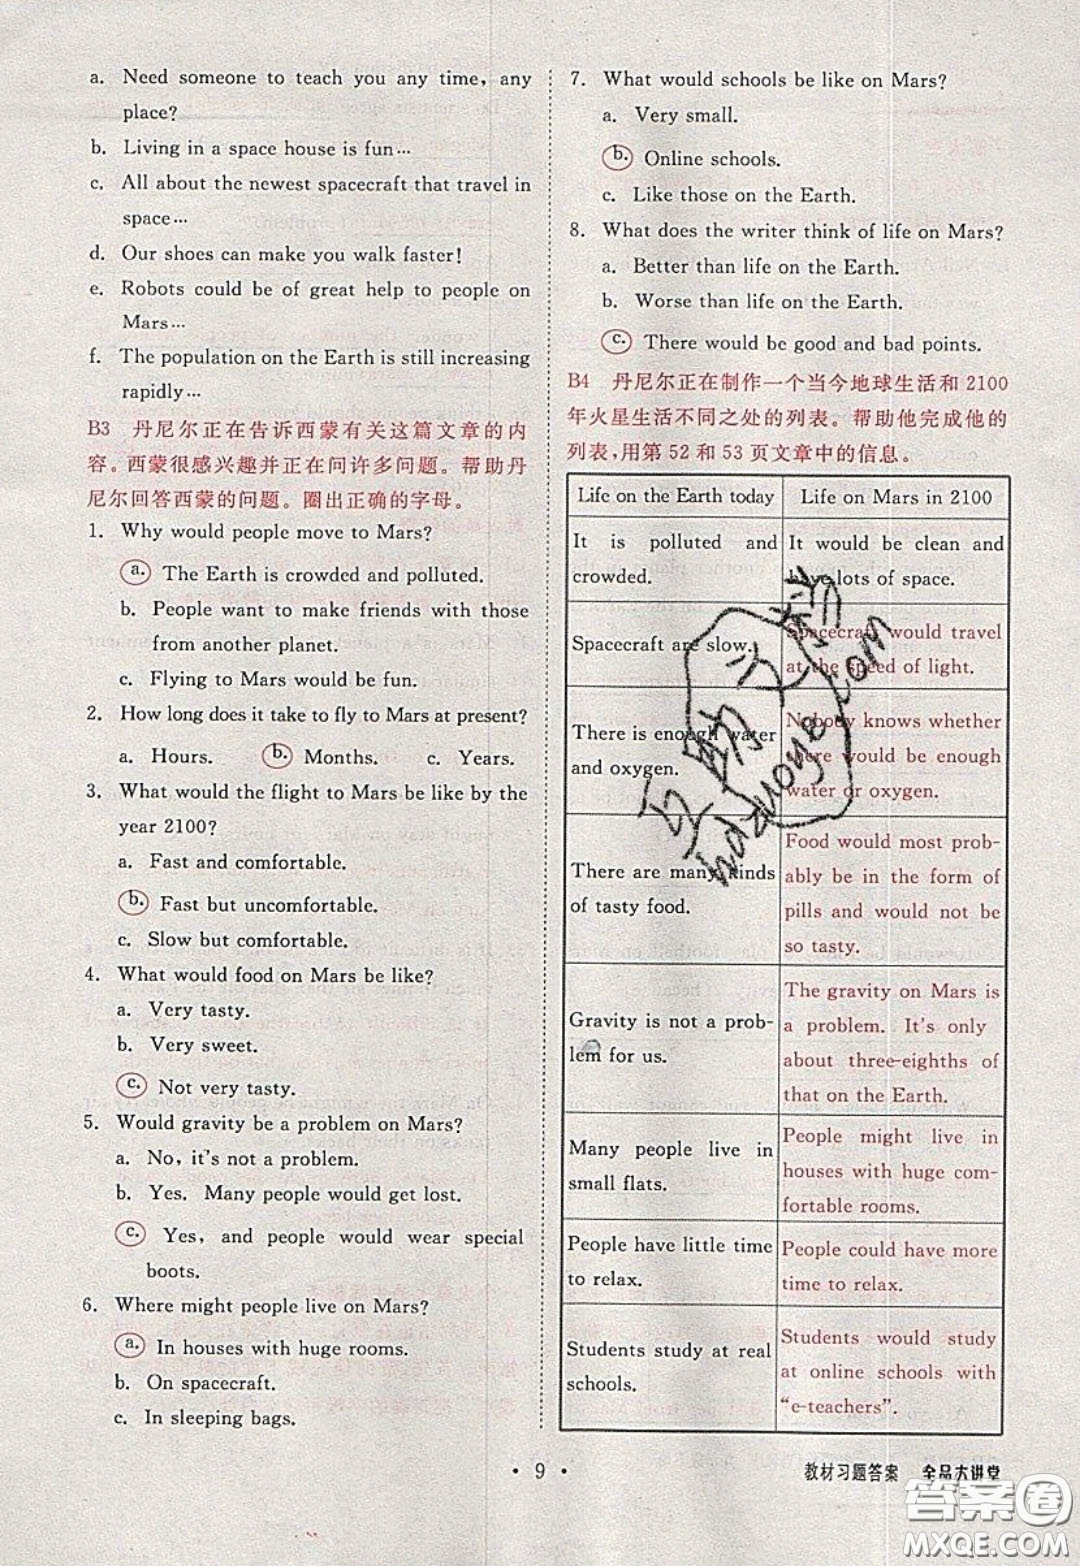 a. Need someone to teach you any time, any
place?
b. Living in a space house is fun…
c. All about the newest spacecraft that travel in
space…
d. Our shoes can make you walk faster!
e. Robots could be of great help to people on
Mars…
f. The population on the Earth is still increasing
rapidly…
B3 丹尼尔正在告诉西蒙有关这篇文章的内
容。西蒙很感兴趣并正在问许多问题。帮助丹
尼尔回答西蒙的问题。圈出正确的字母。
1. Why would people move to Mars?
a. The Earth is crowded and polluted.
b. People want to make friends with those
from another planet.
c. Flying to Mars would be fun.
2. How long does it take to fly to Mars at present?
a. Hours. b. Months. c. Years.
3. What would the flight to Mars be like by the
year 2100?
a. Fast and comfortable.
b. Fast but uncomfortable.
c. Slow but comfortable.
4. What would food on Mars be like?
a. Very tasty.
b. Very sweet.
c. Not very tasty.
5. Would gravity be a problem on Mars?
a. No, it's not a problem.
b. Yes. Many people would get lost.
c. Yes, and people would wear special
boots.
6. Where might people live on Mars?
a. In houses with huge rooms.
b. On spacecraft.
c. In sleeping bags.
7. What would schools be like on Mars?
a. Very small.
b. Online schools.
c. Like those on the Earth.
8. What does the writer think of life on Mars?
a. Better than life on the Earth.
b. Worse than life on the Earth.
c. There would be good and bad points.
B4 丹尼尔正在制作一个当今地球生活和 2100
年火星生活不同之处的列表。帮助他完成他的
列表,用第 52 和 53 页文章中的信息。
Life on the Earth today
Life on Mars in 2100
It is polluted and
crowded.
It would be clean and
have lots of space.
Spacecraft are slow.
Spacecraft would travel
at the speed of light.
There is enough water
and oxygen.
Nobody knows whether
there would be enough
water or oxygen.
There are many kinds
of tasty food.
Food would most prob-
ably be in the form of
pills and would not be
so tasty.
Gravity is not a prob-
lem for us.
The gravity on Mars is
a problem. It's only
about three-eighths of
that on the Earth.
Many people live in
small flats.
People might live in
houses with huge com-
fortable rooms.
People have little time
to relax.
People could have more
time to relax.
Students study at real
schools.
Students would study
at online schools with
“e-teachers”.
• 9 •
教材习题答案 全品大讲堂
答案卷
MXQE.COM